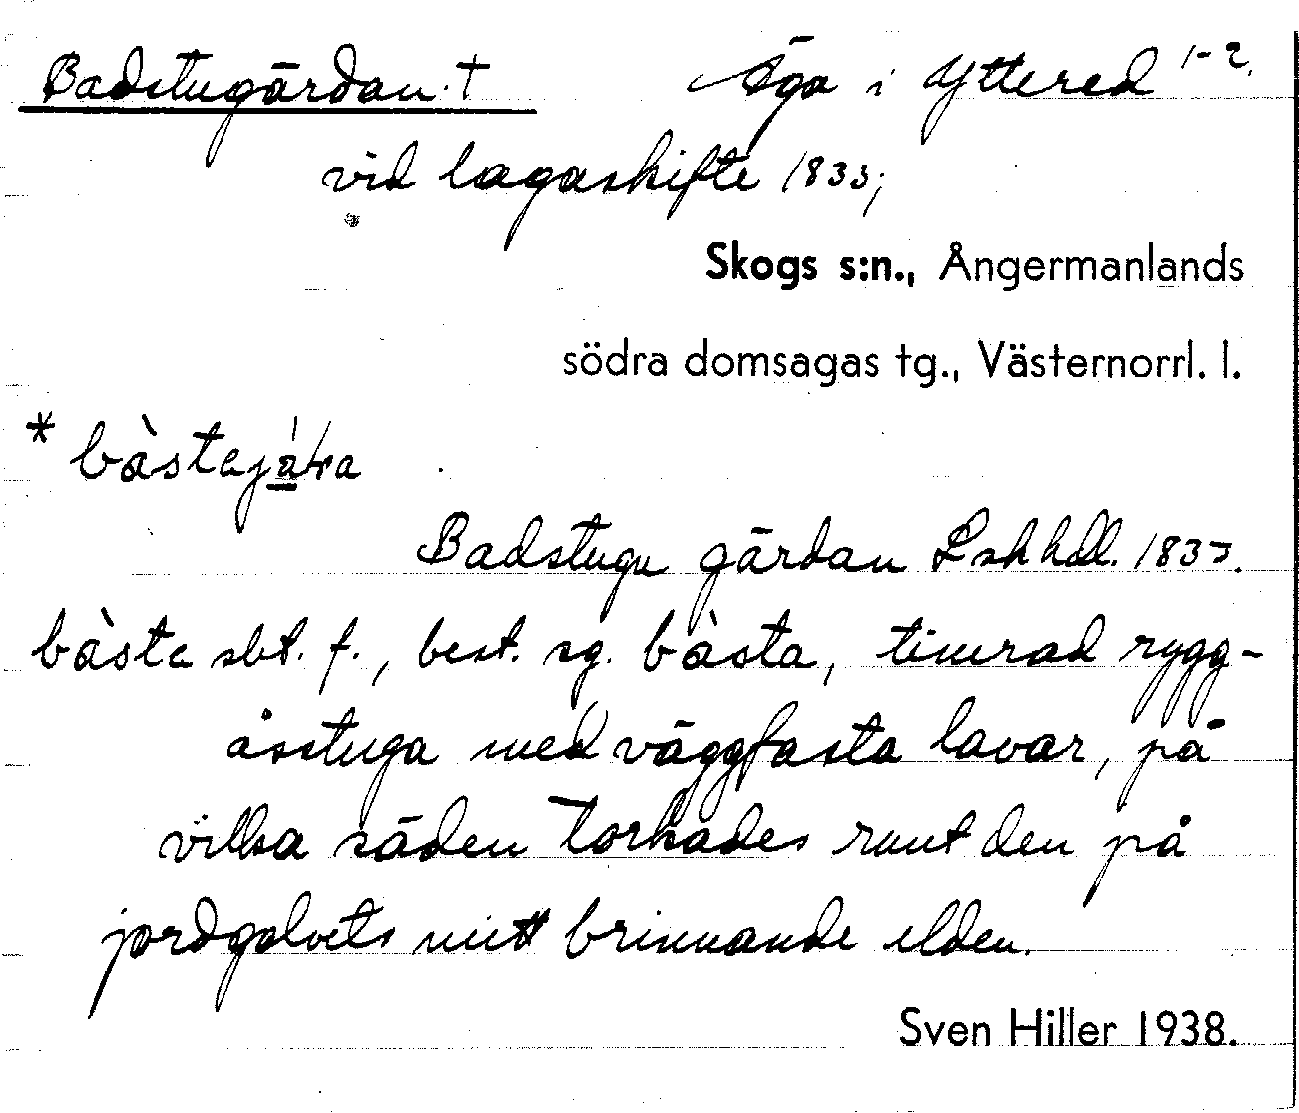 Badstugärdan † Äga i Yttered 1-2.
vid lagaskifte 1833;
Skogs s:n., Ångermanlands
södra domsagas tg., Västernorrl. l.
Badstugu gärdan Lskhdl. 1833.
bàsta sbt. f., best. sg. bàsta, timrad rygg-
åsstuga med väggfasta lavar, på
vilka säden torkades runt den på
jordgolvets mitt brinnande elden.
Sven Hiller 1938.